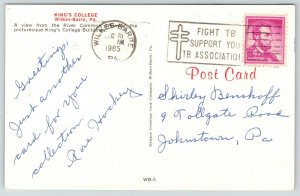 KING'S COLLEGE
Wilkes-Barre, Pa.
A view from the River Common
picturesque King's College Building
WILKES-BARRE
PM
1965
PA.
FIGHT TB
SUPPORT YOUR
TB ASSOCIATION
Post Card
Greetings,
Just another
card for your
collection.
Rose Hockey
Shirley Benshoff
9 Tollgate Road
Johnstown, Pa
WB-5